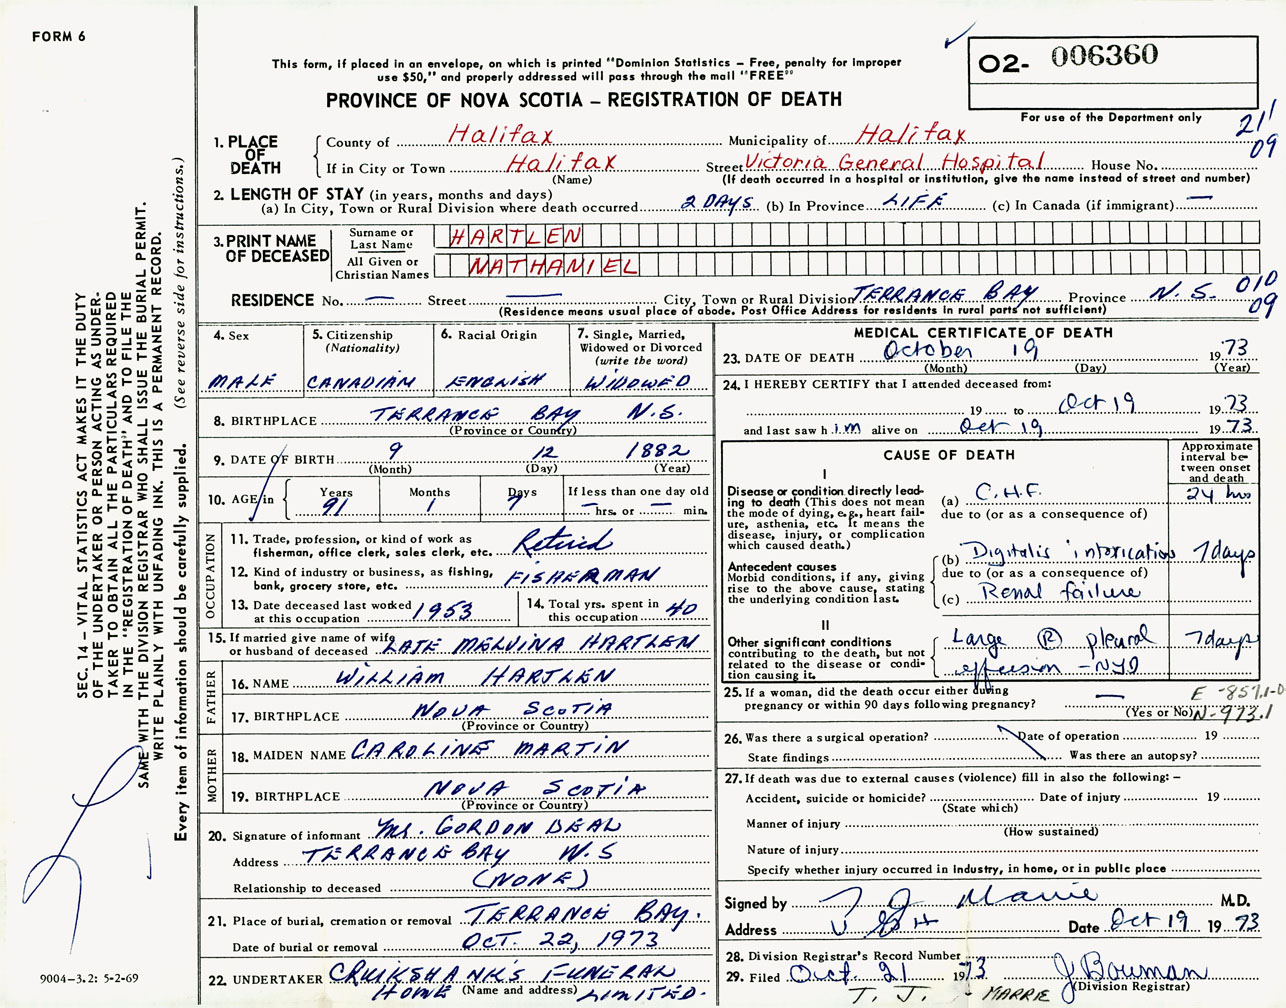 FORM 6
This form, if placed in an envelope, on which is printed "Dominion Statistics – Free, penalty for improper
use $50," and properly addressed will pass through the mail "FREE"
PROVINCE OF NOVA SCOTIA – REGISTRATION OF DEATH
O2- 006360
For use of the Department only
211
09
1. PLACE OF DEATH
County of Halifax Municipality of Halifax
If in City or Town Halifax Street Victoria General Hospital House No.
(Name) (If death occurred in a hospital or institution, give the name instead of street and number)
2. LENGTH OF STAY (in years, months and days)
(a) In City, Town or Rural Division where death occurred 2 DAYS (b) In Province LIFE (c) In Canada (if immigrant) —
3. PRINT NAME OF DECEASED
Surname or Last Name HARTLEN
All Given or Christian Names NATHANIEL
RESIDENCE No. — Street — City, Town or Rural Division TERRANCE BAY Province N.S. 010
09
(Residence means usual place of abode. Post Office Address for residents in rural parts not sufficient)
4. Sex MALE
5. Citizenship (Nationality) CANADIAN
6. Racial Origin ENGLISH
7. Single, Married, Widowed or Divorced (write the word) WIDOWED
8. BIRTHPLACE TERRANCE BAY N.S.
(Province or Country)
9. DATE OF BIRTH 9 12 1882
(Month) (Day) (Year)
10. AGE in Years 91 Months 1 Days 7 If less than one day old — hrs. or — min.
OCCUPATION
11. Trade, profession, or kind of work as
fisherman, office clerk, sales clerk, etc. Retired
12. Kind of industry or business, as fishing,
bank, grocery store, etc. FISHERMAN
13. Date deceased last worked
at this occupation 1953
14. Total yrs. spent in
this occupation 40
15. If married give name of wife
or husband of deceased LATE MELVINA HARTLEN
FATHER
16. NAME WILLIAM HARTLEN
17. BIRTHPLACE NOVA SCOTIA
(Province or Country)
MOTHER
18. MAIDEN NAME CAROLINE MARTIN
19. BIRTHPLACE NOVA SCOTIA
(Province or Country)
20. Signature of informant Mr. GORDON BEAL
Address TERRANCE BAY N.S
Relationship to deceased (NONE)
21. Place of burial, cremation or removal TERRANCE BAY.
Date of burial or removal OCT. 22, 1973
22. UNDERTAKER CRUIKSHANK'S FUNERAL
HOME (Name and address) LIMITED.
MEDICAL CERTIFICATE OF DEATH
23. DATE OF DEATH October 19 1973
(Month) (Day) (Year)
24. I HEREBY CERTIFY that I attended deceased from:
19 to Oct 19 1973
and last saw him alive on Oct 19 1973
CAUSE OF DEATH
Approximate interval between onset and death
I
Disease or condition directly leading to death (This does not mean
the mode of dying, e.g., heart failure, asthenia, etc. It means the
disease, injury, or complication
which caused death.)
(a) C.H.F. 24 hrs
due to (or as a consequence of)
(b) Digitalis intoxication 7 days
due to (or as a consequence of)
(c) Renal failure
Antecedent causes
Morbid conditions, if any, giving
rise to the above cause, stating
the underlying condition last.
II
Other significant conditions
contributing to the death, but not
related to the disease or condition causing it.
Large Ⓡ pleural 7 days
effusion – NYD
25. If a woman, did the death occur either during
pregnancy or within 90 days following pregnancy? —
(Yes or No)
E -857.1-0
N-973.1
26. Was there a surgical operation? Date of operation 19
State findings Was there an autopsy?
27. If death was due to external causes (violence) fill in also the following: –
Accident, suicide or homicide? Date of injury 19
(State which)
Manner of injury
(How sustained)
Nature of injury
Specify whether injury occurred in Industry, in home, or in public place
Signed by T J Marrie M.D.
Address V G H Date Oct 19 1973
28. Division Registrar's Record Number
29. Filed Oct. 21 1973 J Bowman
(Division Registrar)
T. J. MARRIE
SEC. 14 – VITAL STATISTICS ACT MAKES IT THE DUTY
OF THE UNDERTAKER OR PERSON ACTING AS UNDER-
TAKER TO OBTAIN ALL THE PARTICULARS REQUIRED
IN THE "REGISTRATION OF DEATH" AND TO FILE THE
SAME WITH THE DIVISION REGISTRAR WHO SHALL ISSUE THE BURIAL PERMIT.
WRITE PLAINLY WITH UNFADING INK. THIS IS A PERMANENT RECORD.
Every item of information should be carefully supplied. (See reverse side for instructions.)
9004-3.2: 5-2-69